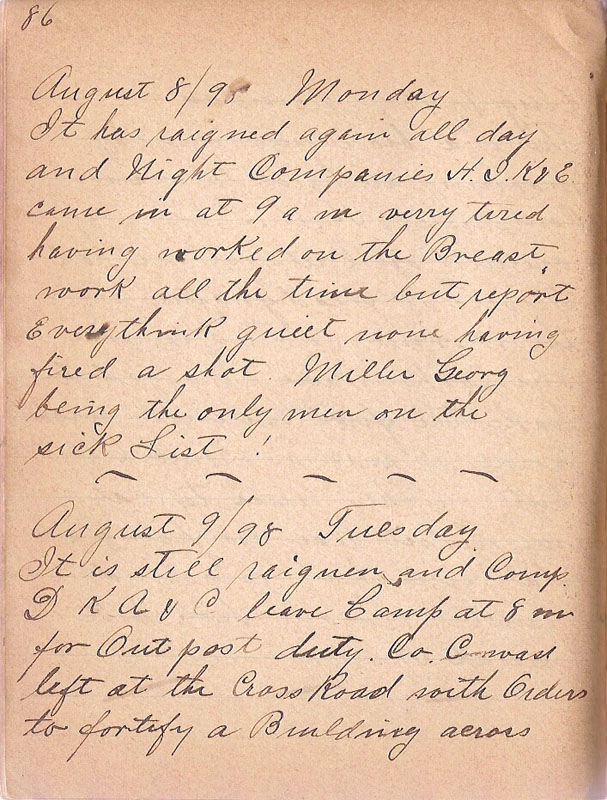 86
August 8/98 Monday
It has raigned again all day
and Night Companies H. I. K & E
came in at 9 a m verry tired
having worked on the Breast
work all the time but report
Everythink quiet none having
fired a shot. Miller Georg
being the only men on the
sick List !
August 9/98 Tuesday
It is still raignen and Comp.
D K A & C leave Camp at 8 m
for Out post duty. Co. C was
left at the Cross Road with Orders
to fortify a Building across